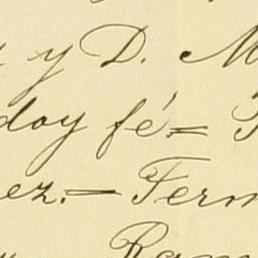 y D. M
doy fé.= 
ez.= Ferm
Ram